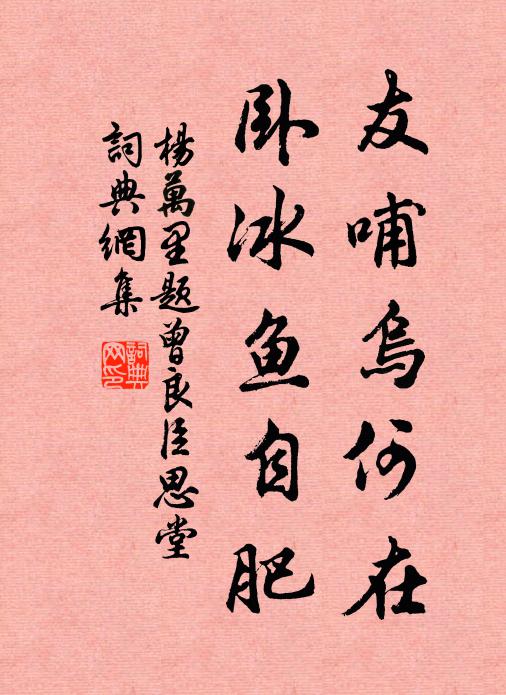 友哺烏何在
卧冰鱼自肥
楊萬里题曾良臣思堂
詞典網集
詞典
网印